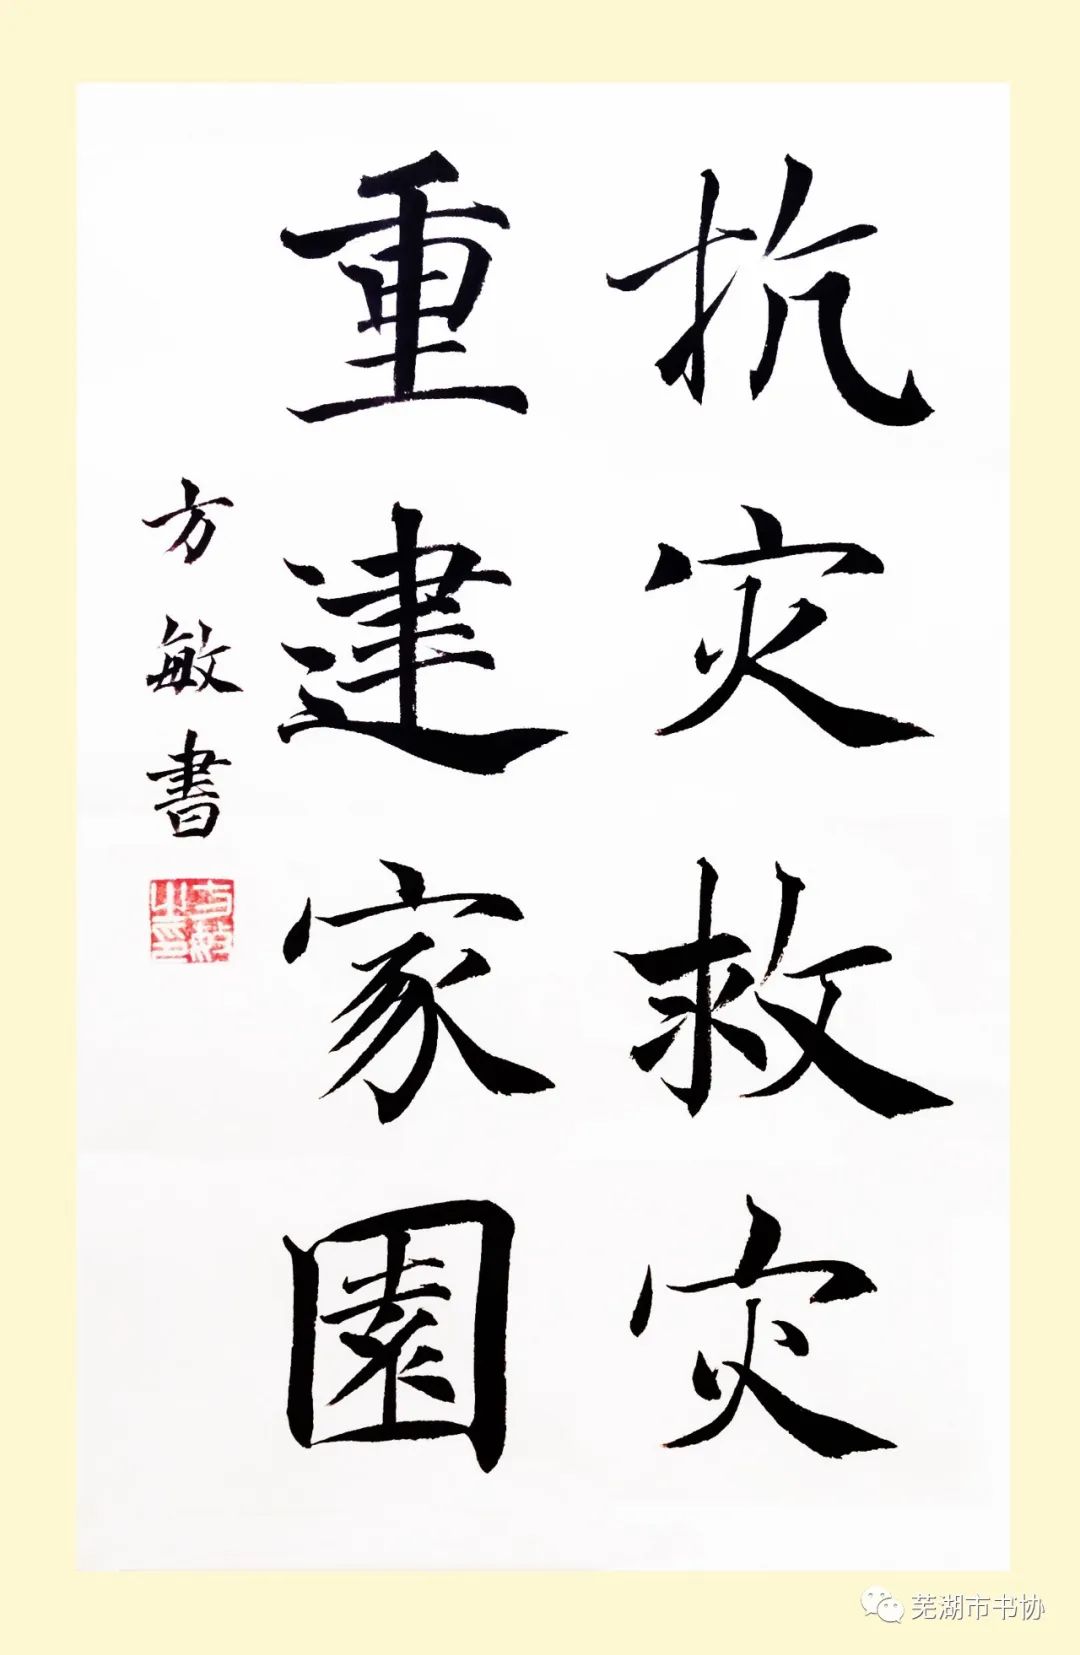 抗灾救灾
重建家園
方敏書
方敏之印
芜湖市书协